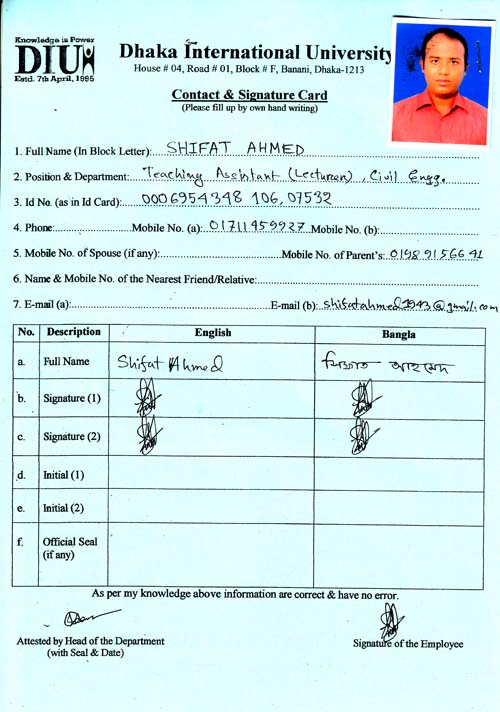 Knowledge is Power
DIU
Estd. 7th April, 1995
Dhaka International University
House # 04, Road # 01, Block # F, Banani, Dhaka-1213
Contact & Signature Card
(Please fill up by own hand writing)
1. Full Name (In Block Letter): SHIFAT AHMED
2. Position & Department: Teaching Assistant (Lecturer), Civil Engg.
3. Id No. (as in Id Card): 0006954348 106, 07532
4. Phone: Mobile No. (a): 01711959927 Mobile No. (b):
5. Mobile No. of Spouse (if any): Mobile No. of Parent's: 0198 91566 41
6. Name & Mobile No. of the Nearest Friend/Relative:
7. E-mail (a): E-mail (b): shifatahmed1943@gmail.com
No. Description English Bangla
a. Full Name Shifat Ahmed সিফাত আহমেদ
b. Signature (1)
c. Signature (2)
d. Initial (1)
e. Initial (2)
f. Official Seal
(if any)
As per my knowledge above information are correct & have no error.
Attested by Head of the Department
(with Seal & Date)
Signature of the Employee